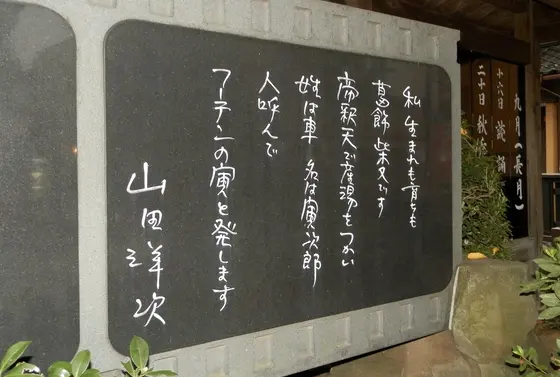 私 生まれも育ちも
葛飾 柴又です
帝釈天で産湯をつかい
姓は車 名は寅次郎
人呼んで
フーテンの寅と発します
山田洋次
九月(長月)
十六日
二十日